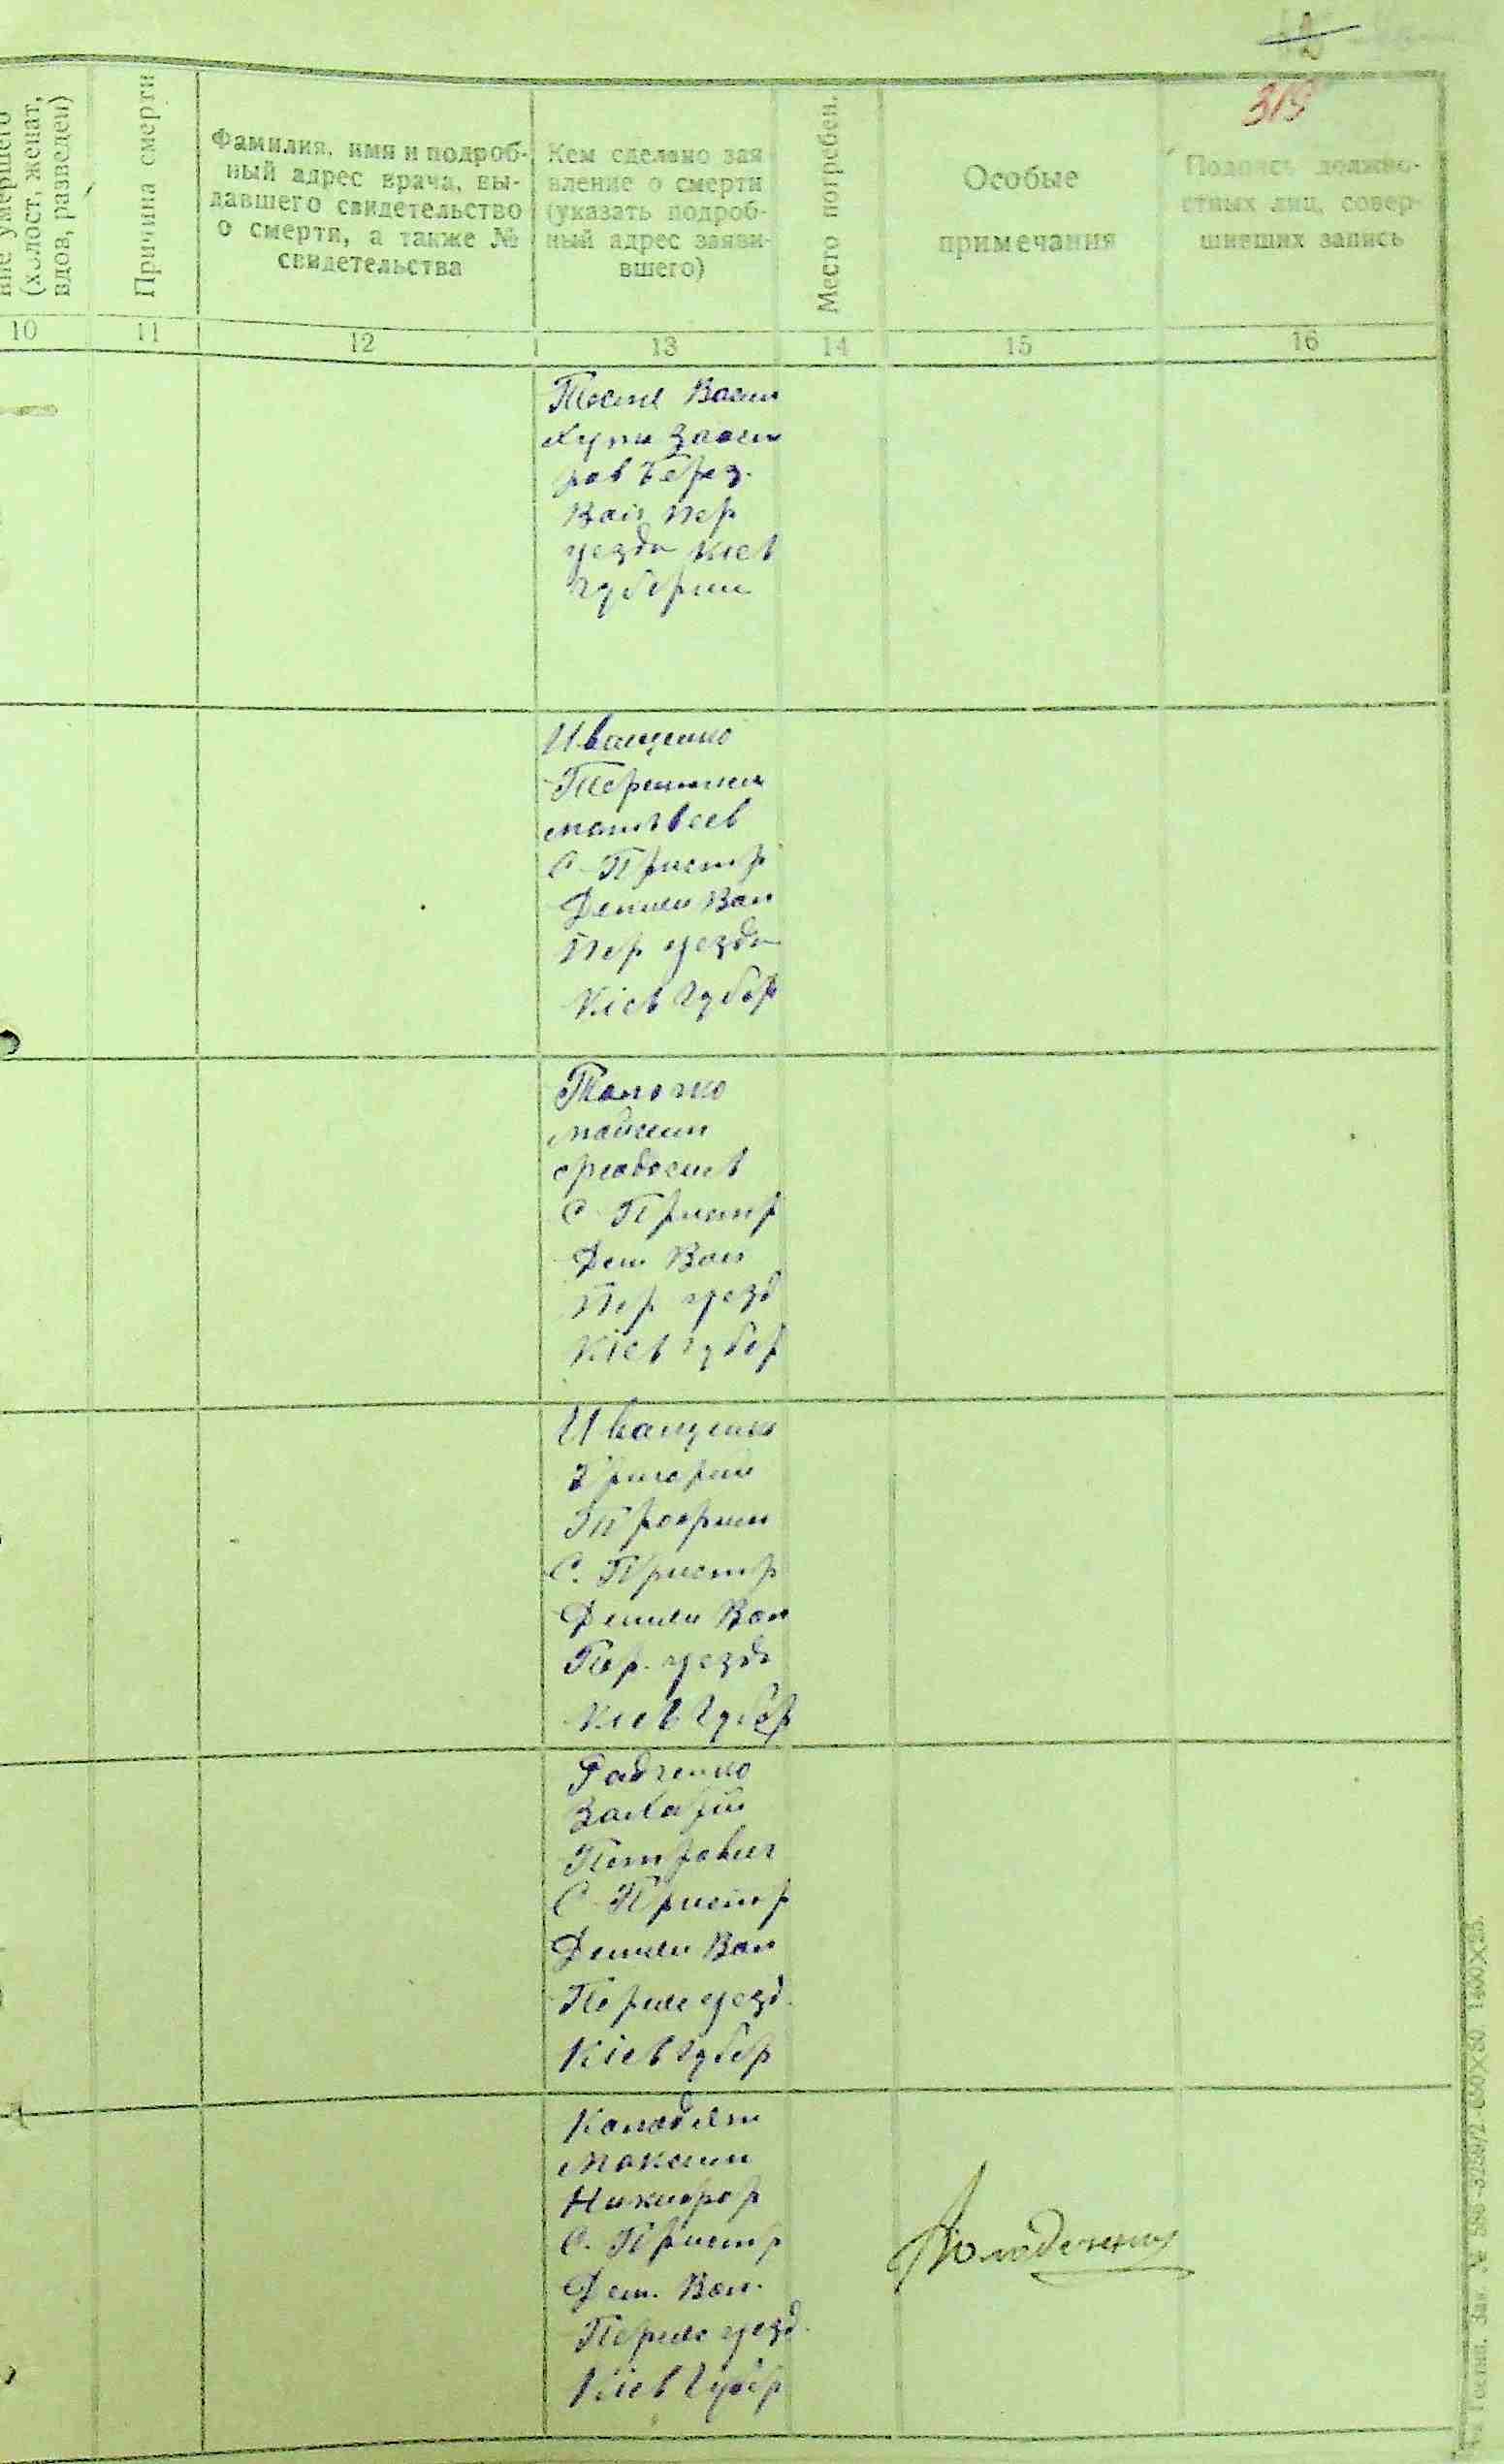 319
ние умершего
(холост, женат,
вдов, разведен)
Причина смерти
Фамилия, имя и подроб-
ный адрес врача, вы-
давшего свидетельство
о смерти, а также №
свидетельства
Кем сделано зая
вление о смерти
(указать подроб-
ный адрес заяви-
вшего)
Место погребен.
Особые
примечания
Подпись должно-
стных лиц, совер-
шивших запись
10 11 12 13 14 15 16
Васил
Вол Пер
уезда Кіев
губернии
Иващенко
Терешко
Матвеев
С Пристр
Демки Вол
Пер уезда
Кіев Губер
Толочко
Моисей
Феодосиев
С Пристр
Дем Вол
Пер уезд
Кіев губер
Иващенко
Григорий
Трофим
С. Пристр
Демки Вол
Пер. уезда
Киев Губер
Радченко
Захарій
Петрович
С Пристр
Демки Вол
Переяс уезд.
Кіев Губер
Колодеж
Максим
Никифор
С. Пристр
Дем. Вол.
Переяс уезд.
Кіев Губер